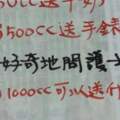 50cc牛奶
500cc送手錶
好奇地問護士
1000cc可以送什